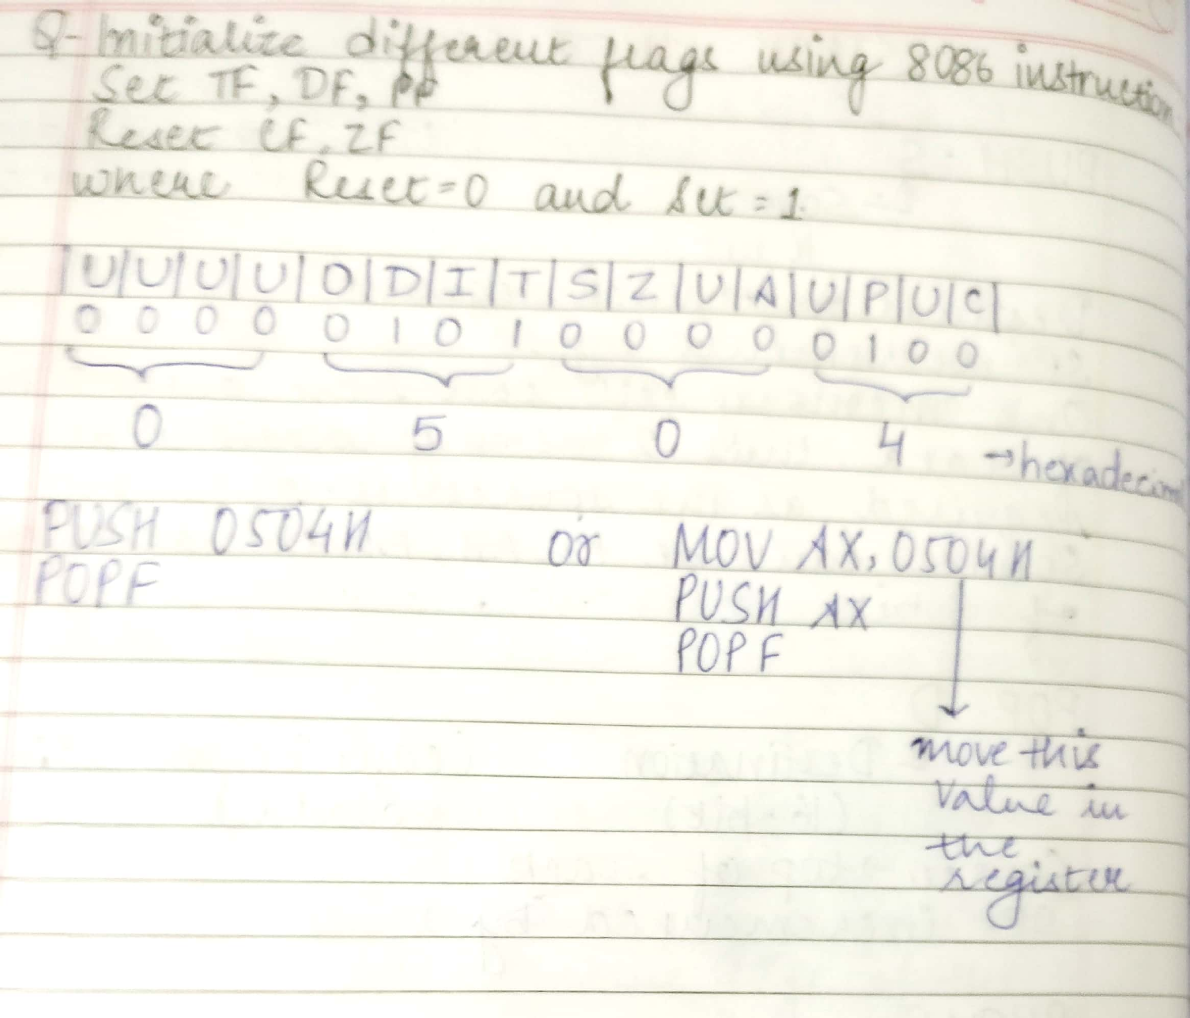 Q- Initialize different flags using 8086 instruction
Set TF, DF, PF
Reset CF, ZF
where Reset=0 and Set = 1.
|U|U|U|U|O|D|I|T|S|Z|U|A|U|P|U|C|
0 0 0 0 0 1 0 1 0 0 0 0 0 1 0 0
0 5 0 4 → hexadecimal
PUSH 0504H or MOV AX, 0504H
POPF PUSH AX
POPF
move this
value in
the
register